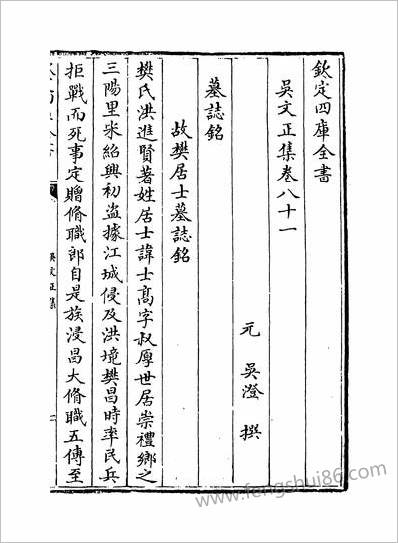 欽定四庫全書
吳文正集卷八十一
元 吳澄 撰
墓誌銘
故樊居士墓誌銘
樊氏洪進賢著姓居士諱士高字叔厚世居崇禮鄉之
三陽里宋紹興初盜據江城侵及洪境樊昌時率民兵
拒戰而死事定贈脩職郎自是族浸昌大脩職五傳至
吳文正集
www.fengshui86.com